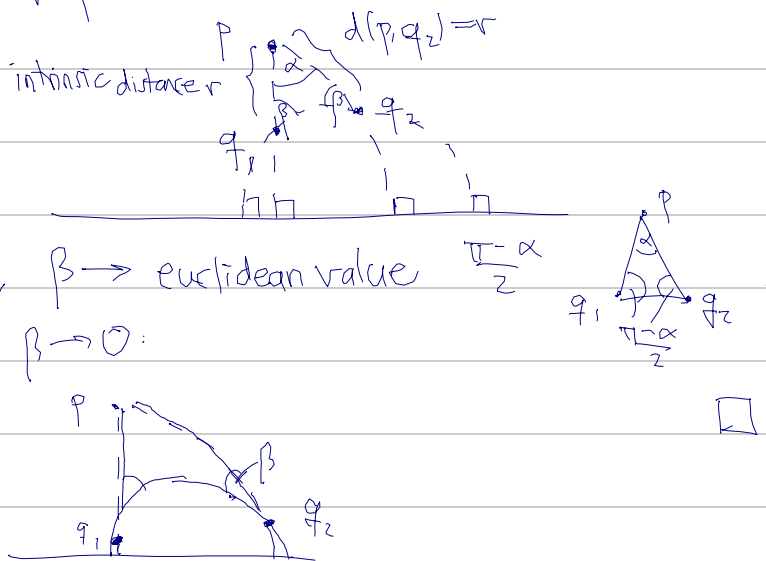 p d(p,q₂)=r
intrinsic distance r α
β β q₂
q₁
p
β → euclidean value π-α/2 α
q₁ q₂
β → 0: π-α/2
p
β
q₂
q₁